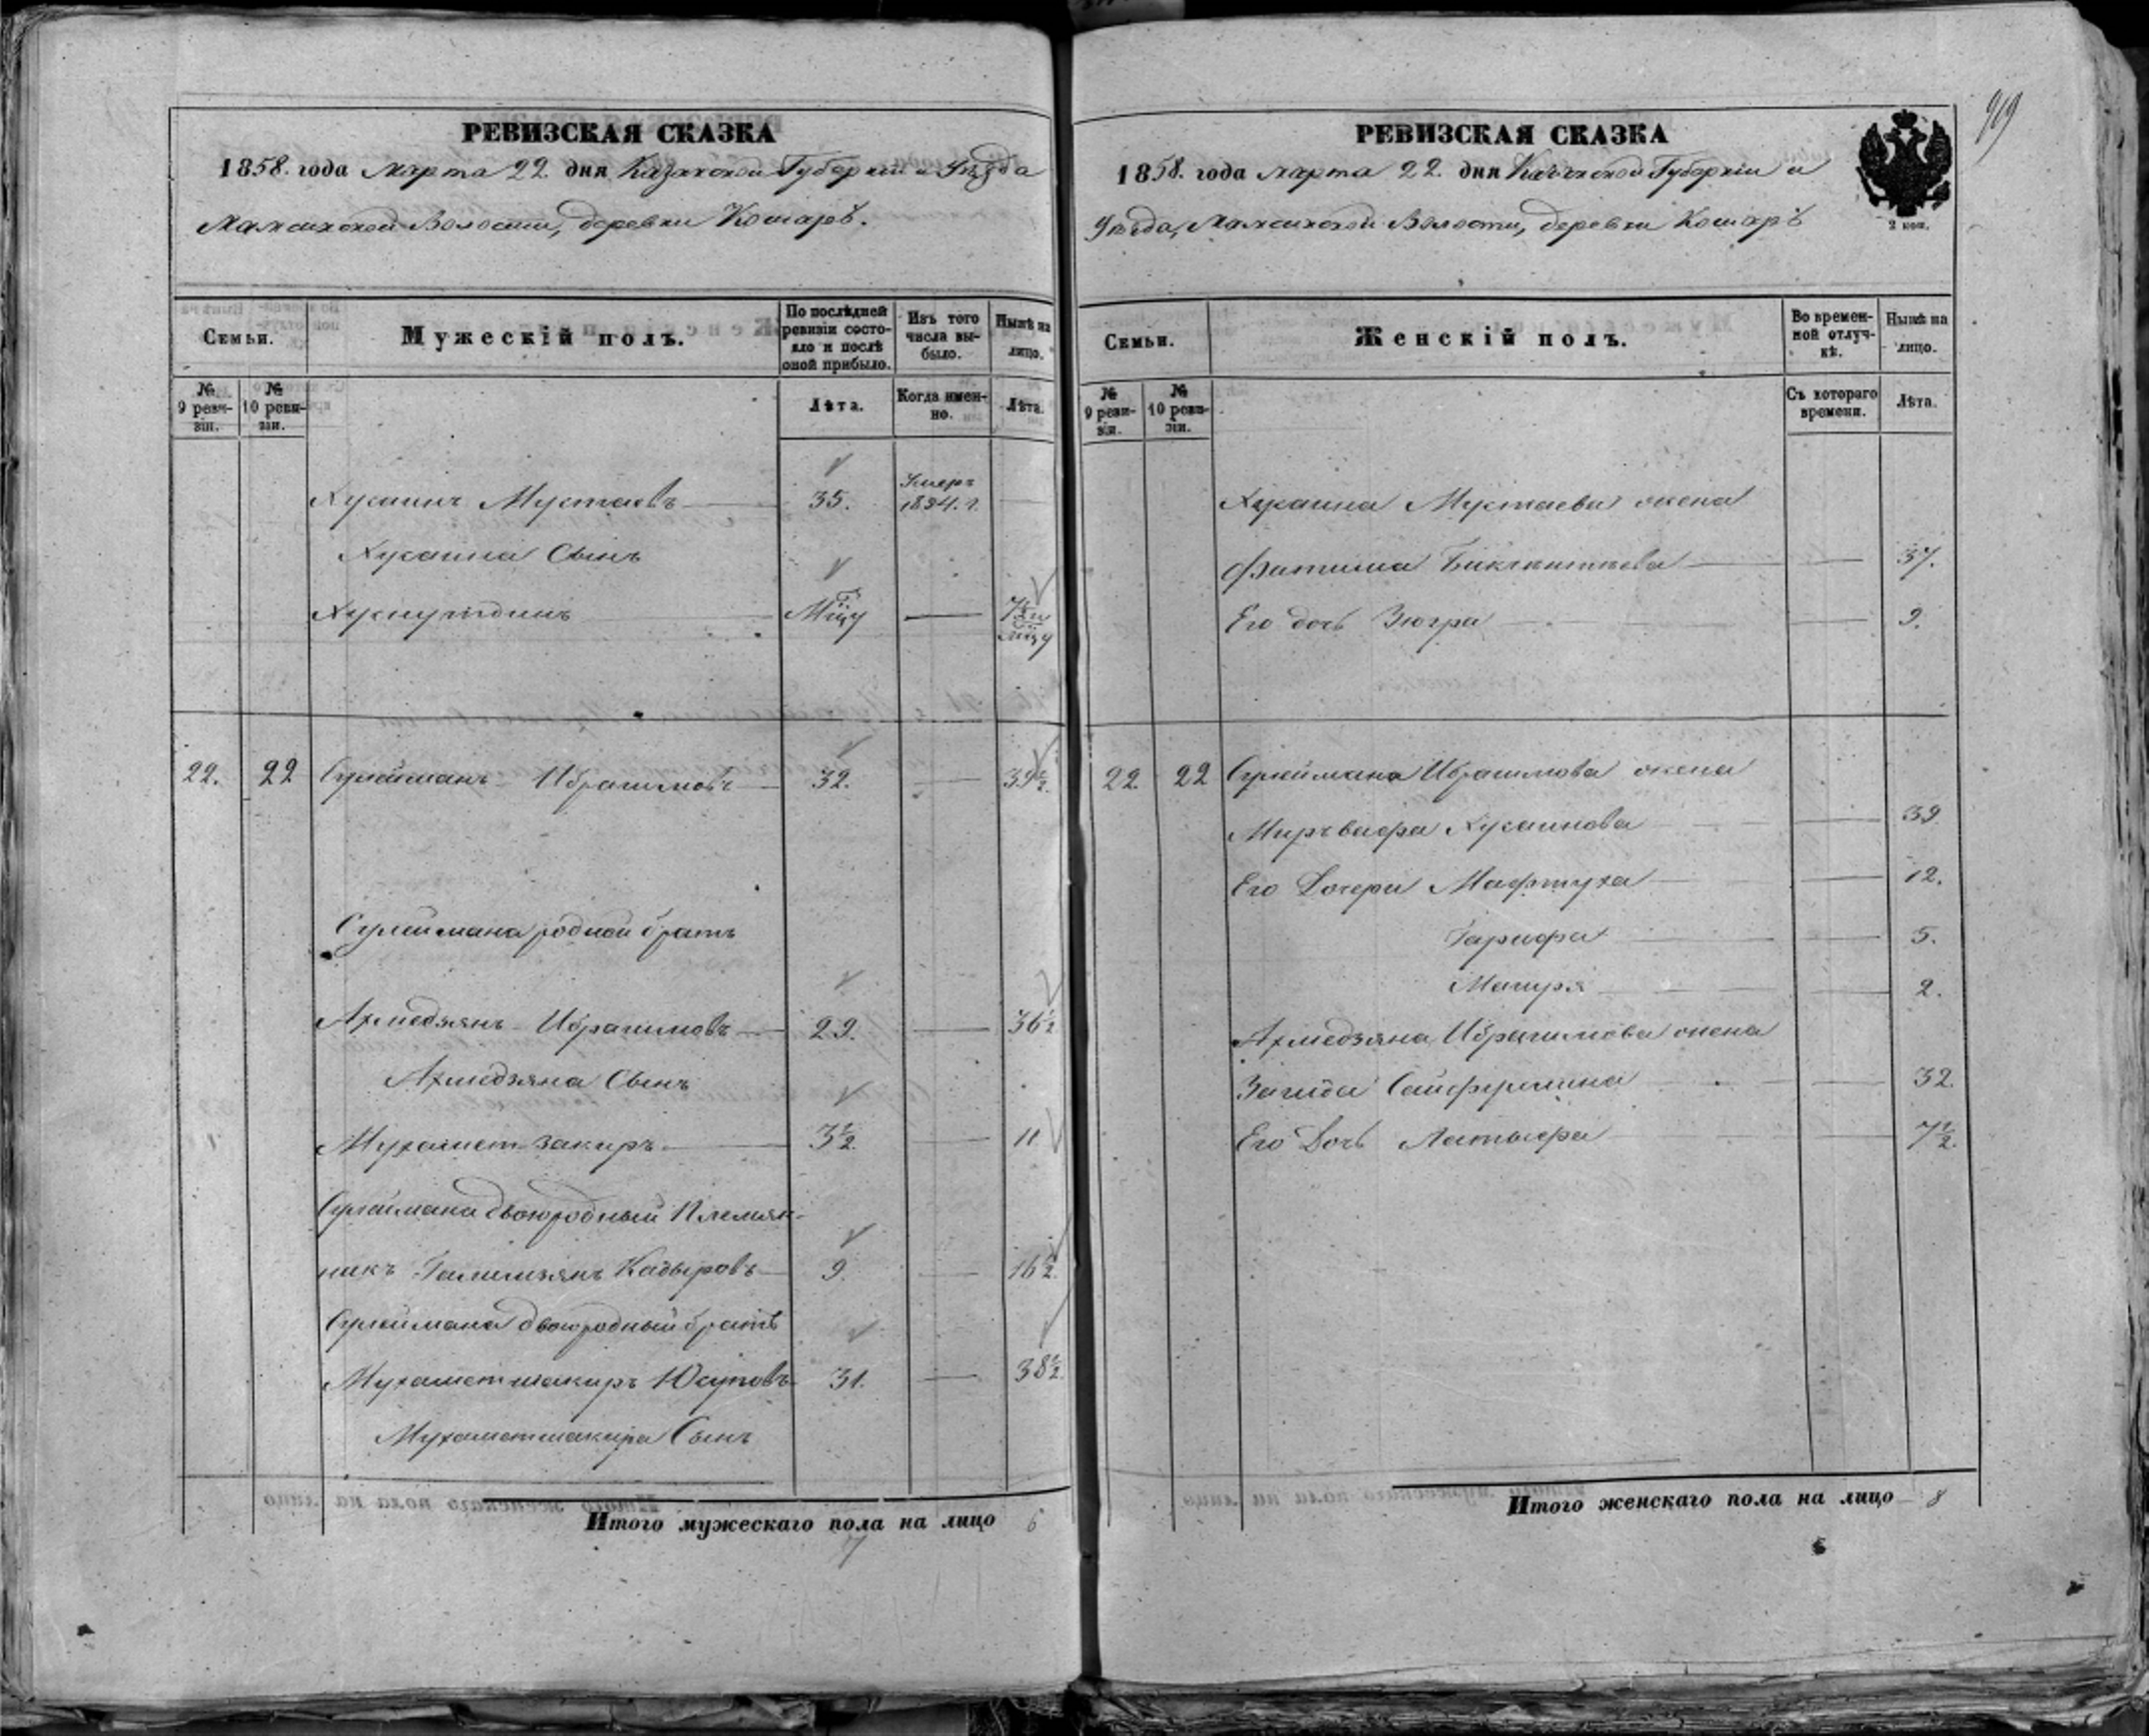 РЕВИЗСКАЯ СКАЗКА
1858. года марта 22. дня Казанской Губерніи и Уѣзда
Мамсинской Волости, деревни Кошаръ.
Семьи.
Мужескій полъ.
По послѣдней ревизіи состояло и послѣ оной прибыло.
Изъ того числа выбыло.
Нынѣ на лицо.
№ 9 ревизіи.
№ 10 ревизіи.
Лѣта.
Когда именно.
Лѣта.
Хусаинъ Мустаевъ 35. Умеръ 1854. г.
Хусаина Сынъ
22. 22 Сулейманъ Ибрагимовъ 32. 39½.
Сулеймана родной братъ
Ахмедзянъ Ибрагимовъ 29. 36½
Ахмедзяна Сынъ
Мухаметзакиръ 3½. 11
Сулеймана двоюродный Племян-
никъ Галимзянъ Кадыровъ 9. 16½.
Сулеймана двоюродный братъ
Мухаметшакиръ Юсуповъ 31. 38½.
Мухаметшакира Сынъ
Итого мужескаго пола на лицо 6
7
РЕВИЗСКАЯ СКАЗКА
1858. года марта 22. дня Казанской Губерніи и
Уѣзда, Мамсинской Волости, деревни Кошаръ
2 коп.
Семьи.
Женскій полъ.
Во временной отлучкѣ.
Нынѣ на лицо.
№ 9 ревизіи.
№ 10 ревизіи.
Съ котораго времени.
Лѣта.
Хусаина Мустаева жена
Фатима 37.
Его дочь Зюгра 9.
22. 22 Сулеймана Ибрагимова жена
Хусаинова 39
Его Дочери Мафтуха 12.
Гарифа 5.
2.
Ахмедзяна Ибрагимова жена
Загида Сайфуллина 32.
Его Дочь Латыфа 7½.
Итого женскаго пола на лицо 8